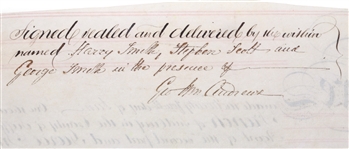 Signed sealed and delivered by the within
named Henry Smith, Stephen Scott and
George Smith in the presence of
Geo Wm Andrews